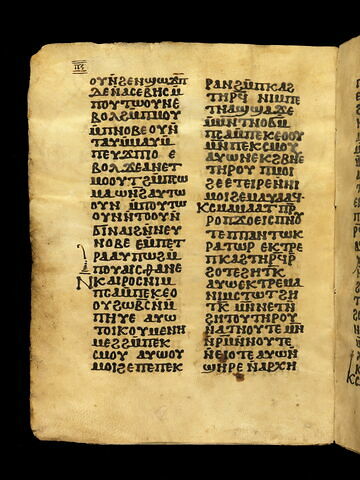 ⲟⲩⲛ̄ϩⲉⲛϣⲁϫⲡ
ⲇⲉⲛⲁⲥⲉⲃⲏⲥⲙ̄
ⲡⲟⲩⲧⲱⲟⲩⲛⲉ
ⲃⲟⲗϩⲙ̄ⲡⲙⲟⲩ
ⲙ̄ⲡⲛⲟⲃⲉⲟⲩⲛ̄
ⲧⲁⲩⲙⲁⲩⲙ̄
ⲡⲉⲩϫⲡⲓⲟ ⲉ
ⲃⲟⲗϫⲉⲁⲛⲉⲧ
ⲙⲟⲟⲩⲧϩⲙ̄ⲡⲧⲱ
ⲙⲁⲱⲛϩⲁⲩⲧⲱ
ⲟⲩⲛ ⲙ̄ⲡⲟⲩⲧⲱ
ⲟⲩⲛⲛ̄ⲧⲟⲟⲩⲛ̄
ϭⲓⲛⲁⲓϩⲛ̄ⲛⲉⲩ
ⲛⲟⲃⲉ ⲉⲙ̄ⲡⲉⲧ
ⲣⲁⲗⲩⲡⲱϩⲙ̄
ⲡⲟⲩⲁⲓⲥⲑⲁⲛⲉ
ⲛⲕⲁⲓⲣⲟⲥⲛⲓⲙ
ⲡϭⲁⲙⲡⲉⲕⲉⲟ
ⲟⲩϩⲱⲃⲥⲛ̄ⲙ
ⲡⲏⲩⲉ ⲁⲩⲱ
ⲧⲟⲓⲕⲟⲩⲙⲉⲛⲏ
ⲙⲉϩϩⲙ̄ⲡⲉⲕ
ⲥⲙⲟⲩ ⲁⲩⲱⲟⲩ
ⲙⲟⲓϩⲉⲡⲉⲡⲉⲕ
ⲣⲁⲛϩⲙ̄ⲡⲕⲁϩ
ⲧⲏⲣϥ ⲛⲓⲙⲡⲉ
ⲧⲛⲁϣϣⲁϫⲉ
ⲙⲛ̄ⲛⲧⲛⲟϭⲛ̄
ⲡϭⲁⲙⲡⲉⲕⲉⲟⲟⲩ
ⲙⲛ̄ⲡⲉⲕⲥⲙⲟⲩ
ⲁⲩⲱⲛⲉⲕϩⲃⲏⲉ
ⲧⲏⲣⲟⲩ ⲡⲙⲟⲓ
ϩⲉⲉⲧⲉⲓⲣⲉⲛⲛⲓ
ⲙⲟⲓϩⲉⲙⲁⲩⲁⲁⲕ
ⲕⲥⲙⲁⲙⲁⲁⲧ ⲡⲣ̄
ⲣⲟⲡϫⲟⲉⲓⲥⲡⲛⲟⲩ
ⲧⲉⲡⲡⲁⲛⲧⲱⲕ
ⲣⲁⲧⲱⲣ ⲉⲕⲧⲣⲉ
ⲡⲕⲁϩⲧⲏⲣϥⲣ̄
ϩⲟⲧⲉϩⲏⲧⲕ
ⲁⲩⲱⲉⲕⲧⲣⲉⲡⲙⲁ
ⲛⲓⲙⲥⲧⲱⲧϩⲏ
ⲧⲕ ⲙⲛ̄ⲛⲉⲧⲛ̄
ϩⲏⲧⲟⲩⲧⲏⲣⲟⲩ
ⲛⲁⲡⲛⲟⲩⲧⲉⲙⲛ̄
ⲛⲣ̄ⲙⲛ̄ⲛⲟⲩⲧⲉ
ⲛ̄ⲉⲓⲟⲧⲉⲁⲩⲱⲛ̄
ϣⲏⲣⲉⲛ̄ⲁⲣⲭⲏ